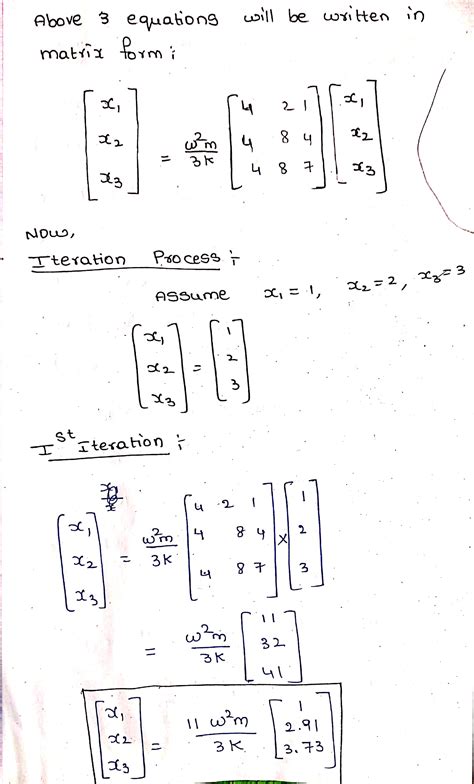 Above 3 equations will be written in
matrix form;
[x₁ x₂ x₃] = ω²m/3K [4 2 1; 4 8 4; 4 8 7] [x₁ x₂ x₃]
Now,
Iteration Process :-
Assume x₁ = 1, x₂ = 2, x₃ = 3
[x₁ x₂ x₃] = [1 2 3]
Ist Iteration :-
[x₁ x₂ x₃] = ω²m/3K [4 2 1; 4 8 4; 4 8 7] × [1 2 3]
= ω²m/3K [11 32 41]
[x₁ x₂ x₃] = 11 ω²m/3K [1 2.91 3.73]